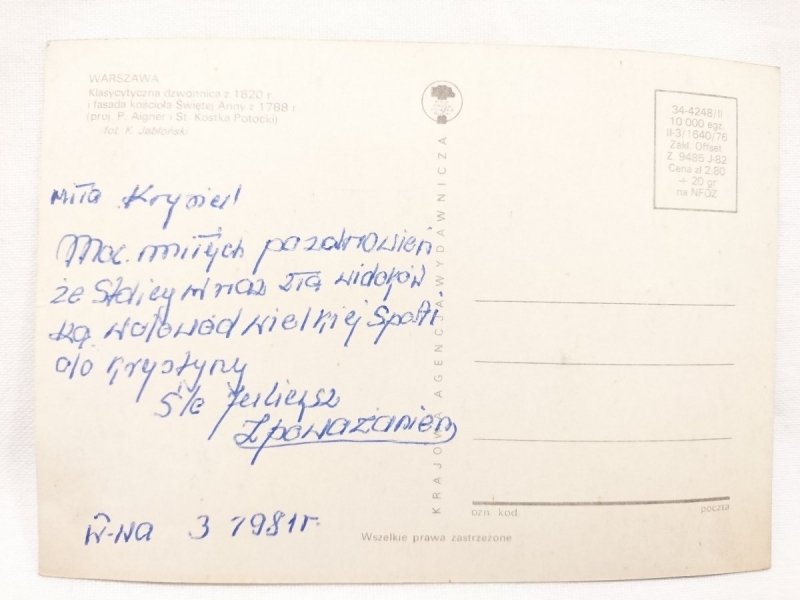 WARSZAWA
Klasycytyczna dzwonnica z 1820 r.
i fasada kościoła Świętej Anny z 1788 r.
(proj. P. Aigner i St. Kostka Potocki)
fot. K. Jabłoński
34-4248/II
10 000 egz.
II-3/1640/76
Zakł. Offset
Z. 9485 J-82
Cena zł 2.80
+ 20 gr
na NFOZ
miła Krysiu!
Moc miłych pozdrowień
że Stolicy wraz z tą widoków
ką wdowód wielkiej
do Krystyny
Śle Juliusz
Z poważaniem
W-wa 3 1981r.
KRAJOWA AGENCJA WYDAWNICZA
ozn. kod
poczta
Wszelkie prawa zastrzeżone